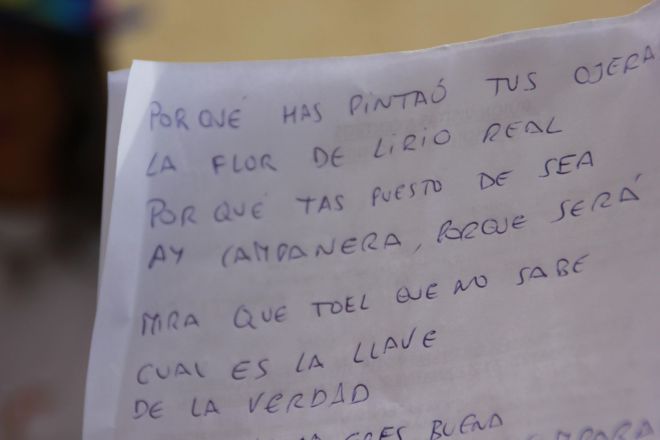 PORQUÉ HAS PINTAÓ TUS OJERA
LA FLOR DE LIRIO REAL
POR QUÉ TAS PUESTO DE SEA
AY CAMPANERA, PORQUE SERÁ
MIRA QUE TOEL QUE NO SABE
CUAL ES LA LLAVE
DE LA VERDAD
ERES BUENA